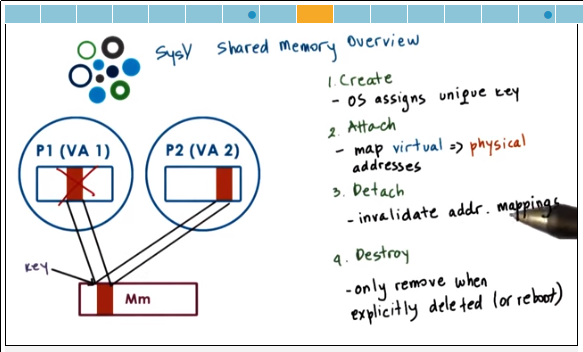 SysV Shared Memory Overview
1. Create
- OS assigns unique key
2. Attach
- map virtual => physical
addresses
3. Detach
- invalidate addr. mappings
4. Destroy
- only remove when
explicitly deleted (or reboot)
P1 (VA 1) P2 (VA 2)
Key
Mm